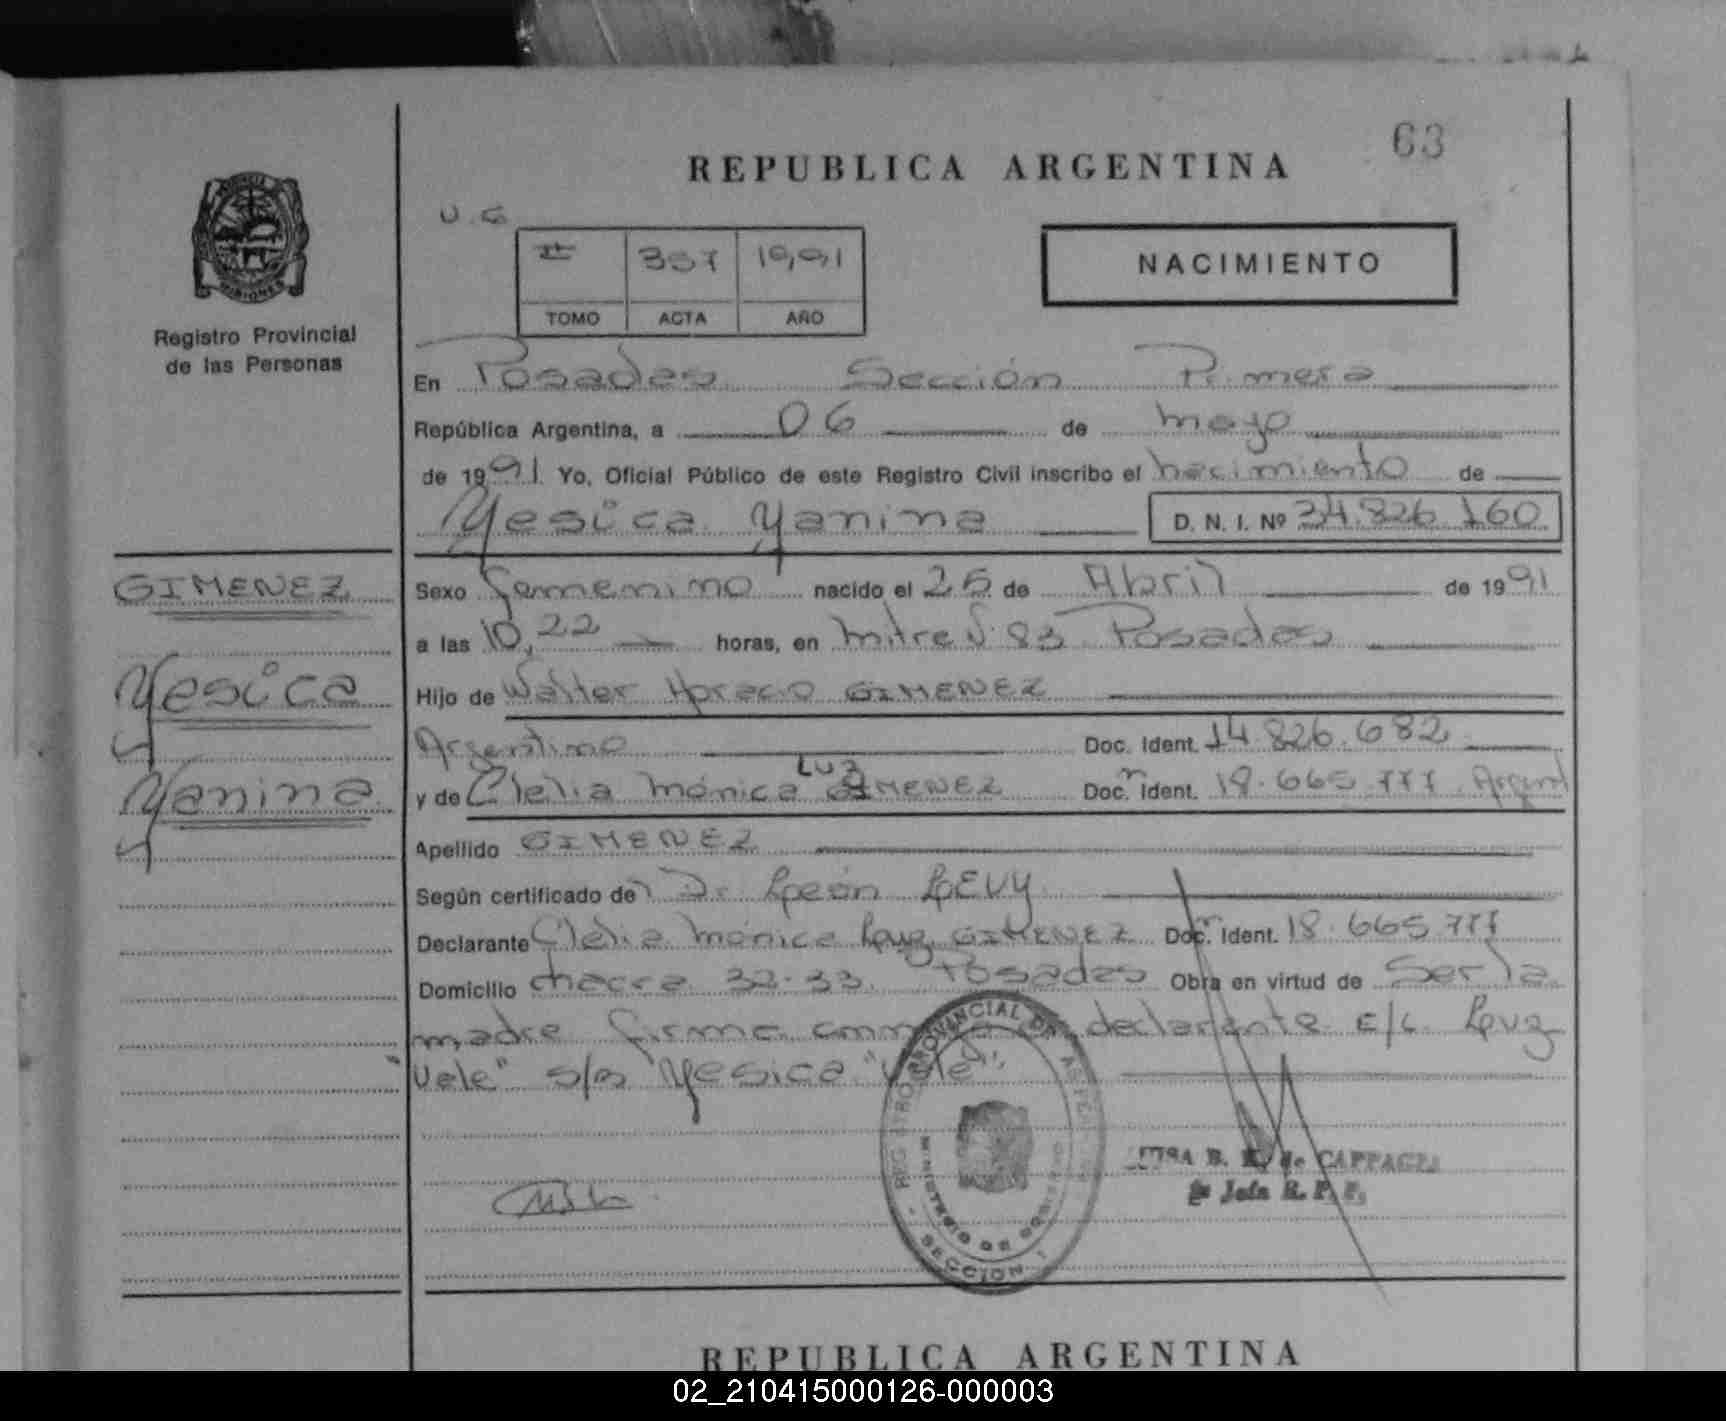 63
REPUBLICA ARGENTINA
U.G
II 357 1991
TOMO ACTA AÑO
NACIMIENTO
MISIONES
Registro Provincial
de las Personas
En Posadas Sección Primera
República Argentina, a 06 de mayo
de 1991. Yo, Oficial Público de este Registro Civil inscribo el nacimiento de
Yesica Yanina D. N. I. Nº 34.826.160
GIMENEZ
Yesica
Yanina
Sexo femenino nacido el 25 de Abril de 1991
a las 10,22 horas, en mitre N. 83 Posadas
Hijo de Walter Horacio GIMENEZ
Argentino Doc. Ident. 14.826.682
Luz
y de Clelia Mónica GIMENEZ Doc. Ident. 18.665.777 Argent
Apellido GIMENEZ
Según certificado de Dr León LEVY
Declarante Clelia Mónica Luz GIMENEZ Doc. Ident. 18.665.777
Domicilio chacra 32-33. Posadas Obra en virtud de Ser la
madre firma como declarante E/L Luz
"Vale" s/r Yesica "Vale"
REGISTRO PROVINCIAL DE LAS PERSONAS
MINISTERIO DE GOBIERNO
SECCION
B. de
Jefa R. P. P.
REPUBLICA ARGENTINA
02_210415000126-000003